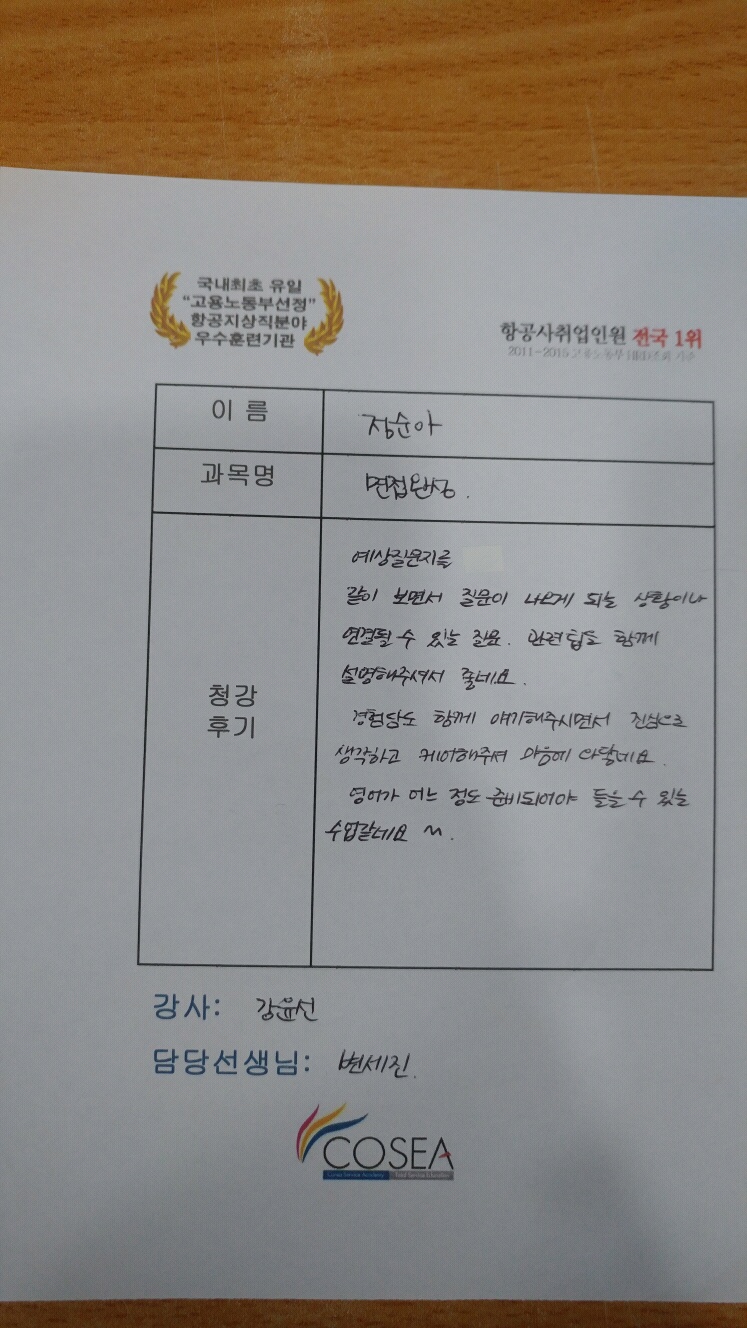 국내최초 유일
"고용노동부선정"
항공지상직분야
우수훈련기관
항공사취업인원 전국 1위
2011~2015 고용노동부 HRD조회 기준
이 름
정순아
과목명
면접완성.
청강
후기
예상질문지를
같이 보면서 질문이 나오게 되는 상황이나
연결될 수 있는 질문. 관련팁도 함께
설명해주셔서 좋네요.
경험담도 함께 얘기해주시면서 진심으로
생각하고 케어해주셔 마음에 와닿네요.
영어가 어느 정도 준비되어야 들을 수 있는
수업같네요 ~.
강사: 강윤선
담당선생님: 변세진.
COSEA